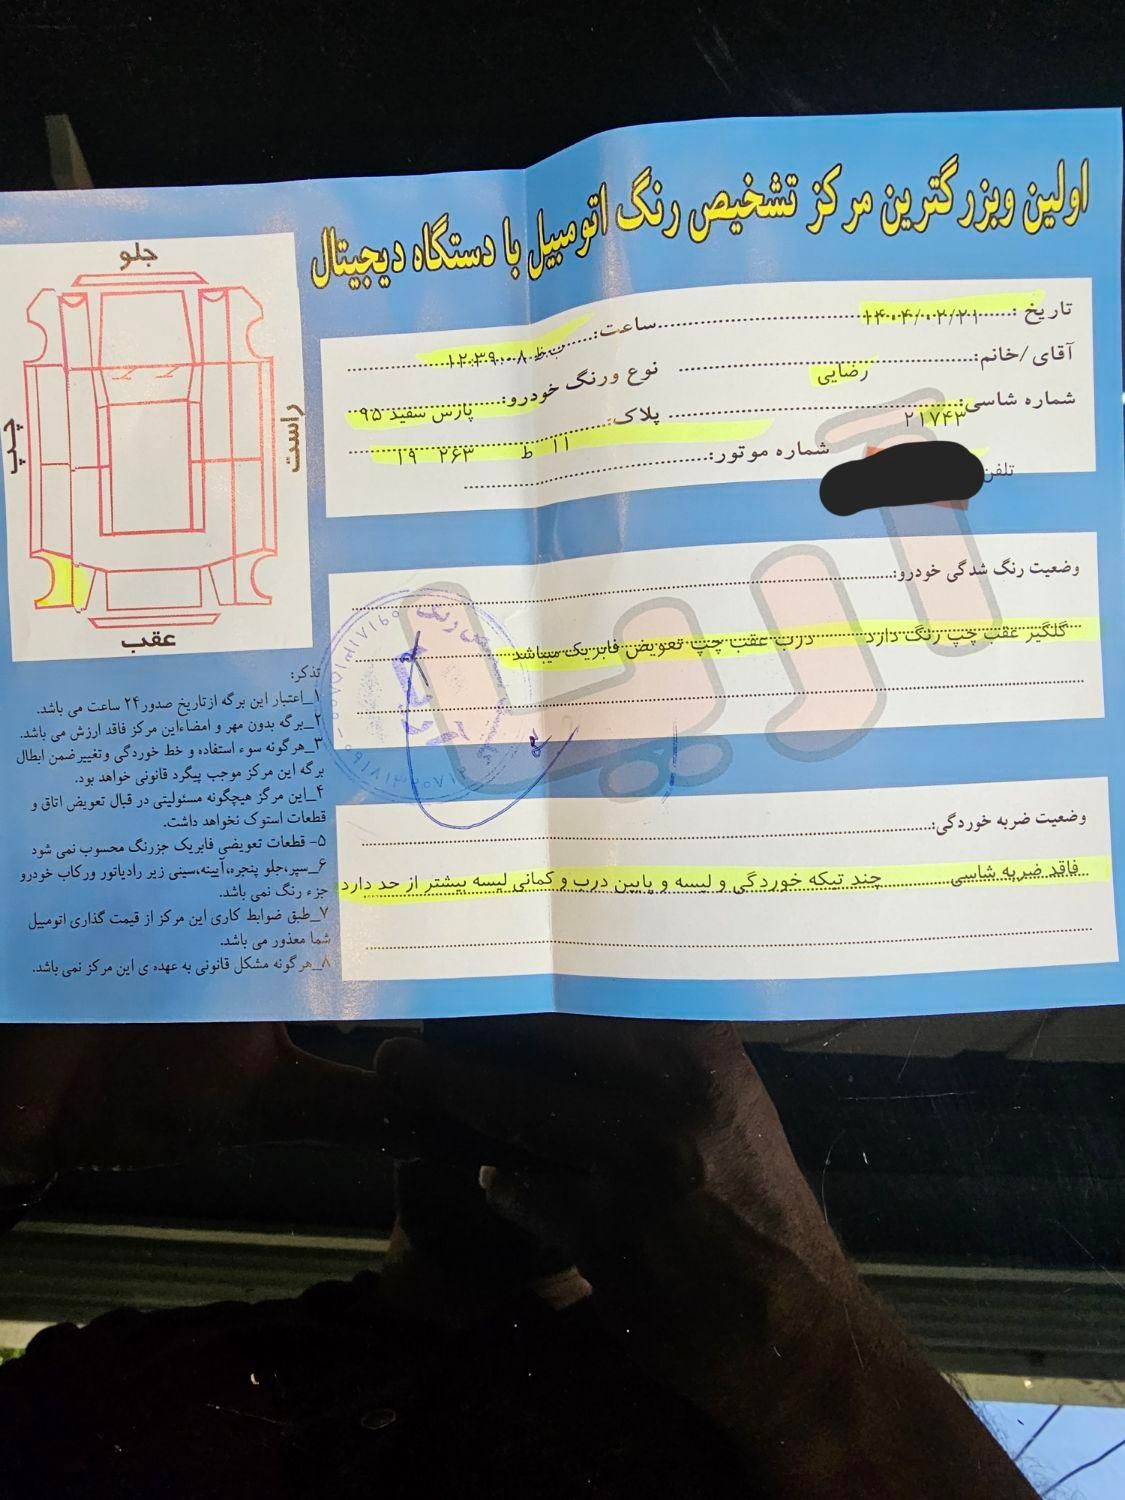 اولین وبزرگترین مرکز تشخیص رنگ اتومبیل با دستگاه دیجیتال
تاریخ : ۱۴۰۴/۰۲/۲۱ ساعت: ۱۲:۳۹:۰۸ ب.ظ
آقای /خانم: رضایی نوع ورنگ خودرو: پارس سفید ۹۵
شماره شاسی: ۲۱۷۴۳ پلاک: ۱۱ ط ۲۶۳ ۱۹
تلفن شماره موتور:
وضعیت رنگ شدگی خودرو:
گلگیر عقب چپ رنگ دارد درب عقب چپ تعویض فابریک میباشد
وضعیت ضربه خوردگی:
فاقد ضربه شاسی چند تیکه خوردگی و لیسه و پایین درب و کمانی لیسه بیشتر از حد دارد
جلو
راست
چپ
عقب
تذکر:
۱_اعتبار این برگه ازتاریخ صدور۲۴ ساعت می باشد.
۲_برگه بدون مهر و امضاءاین مرکز فاقد ارزش می باشد.
۳_هرگونه سوء استفاده و خط خوردگی وتغییرضمن ابطال
برگه این مرکز موجب پیگرد قانونی خواهد بود.
۴_این مرکز هیچگونه مسئولیتی در قبال تعویض اتاق و
قطعات استوک نخواهد داشت.
۵- قطعات تعویضی فابریک جزرنگ محسوب نمی شود
۶_سپر،جلو پنجره،آیینه،سینی زیر رادیاتور ورکاب خودرو
جزء رنگ نمی باشد.
۷_طبق ضوابط کاری این مرکز از قیمت گذاری اتومبیل
شما معذور می باشد.
۸_هرگونه مشکل قانونی به عهده ی این مرکز نمی باشد.
آریا